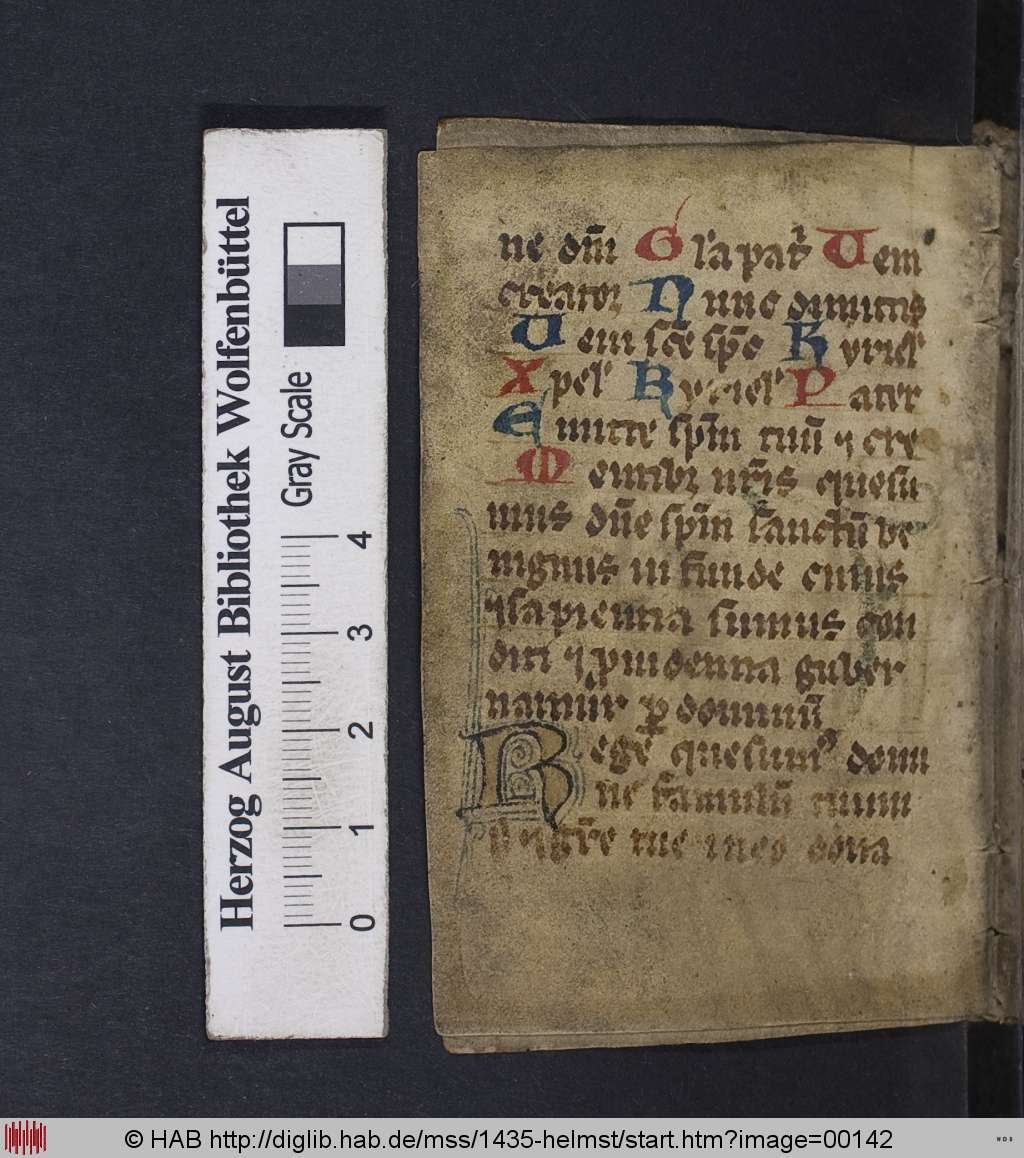 ne dn̄i Gl'a pat' Uem
creator Nunc dimittis
Ueni sc̄e sp̄c Kyriel'
Xpel' Kyriel' Pater
Emitte sp̄m tuū ⁊ cre
Mentibꝫ nr̄is quesu
mus dn̄e sp̄m sanctū be
nignus infunde cuius
⁊ sapientia sumus con
diti ⁊ puidentia guber
namur ꝑ dominū
Rege quesumꝰ domi
ne famulū tuum
⁊ gre tue in eo dona
Herzog August Bibliothek Wolfenbüttel
Gray Scale
0 1 2 3 4
© HAB http://diglib.hab.de/mss/1435-helmst/start.htm?image=00142